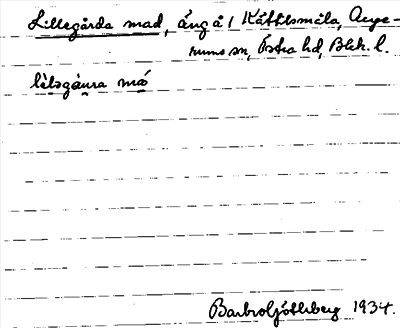 Lillegårda mad, äng å / Kättilsmåla, Auge-
rums sn, Östra hd, Blek. l.
lìlsgáųra mó
Barbro Ljótsberg 1934.